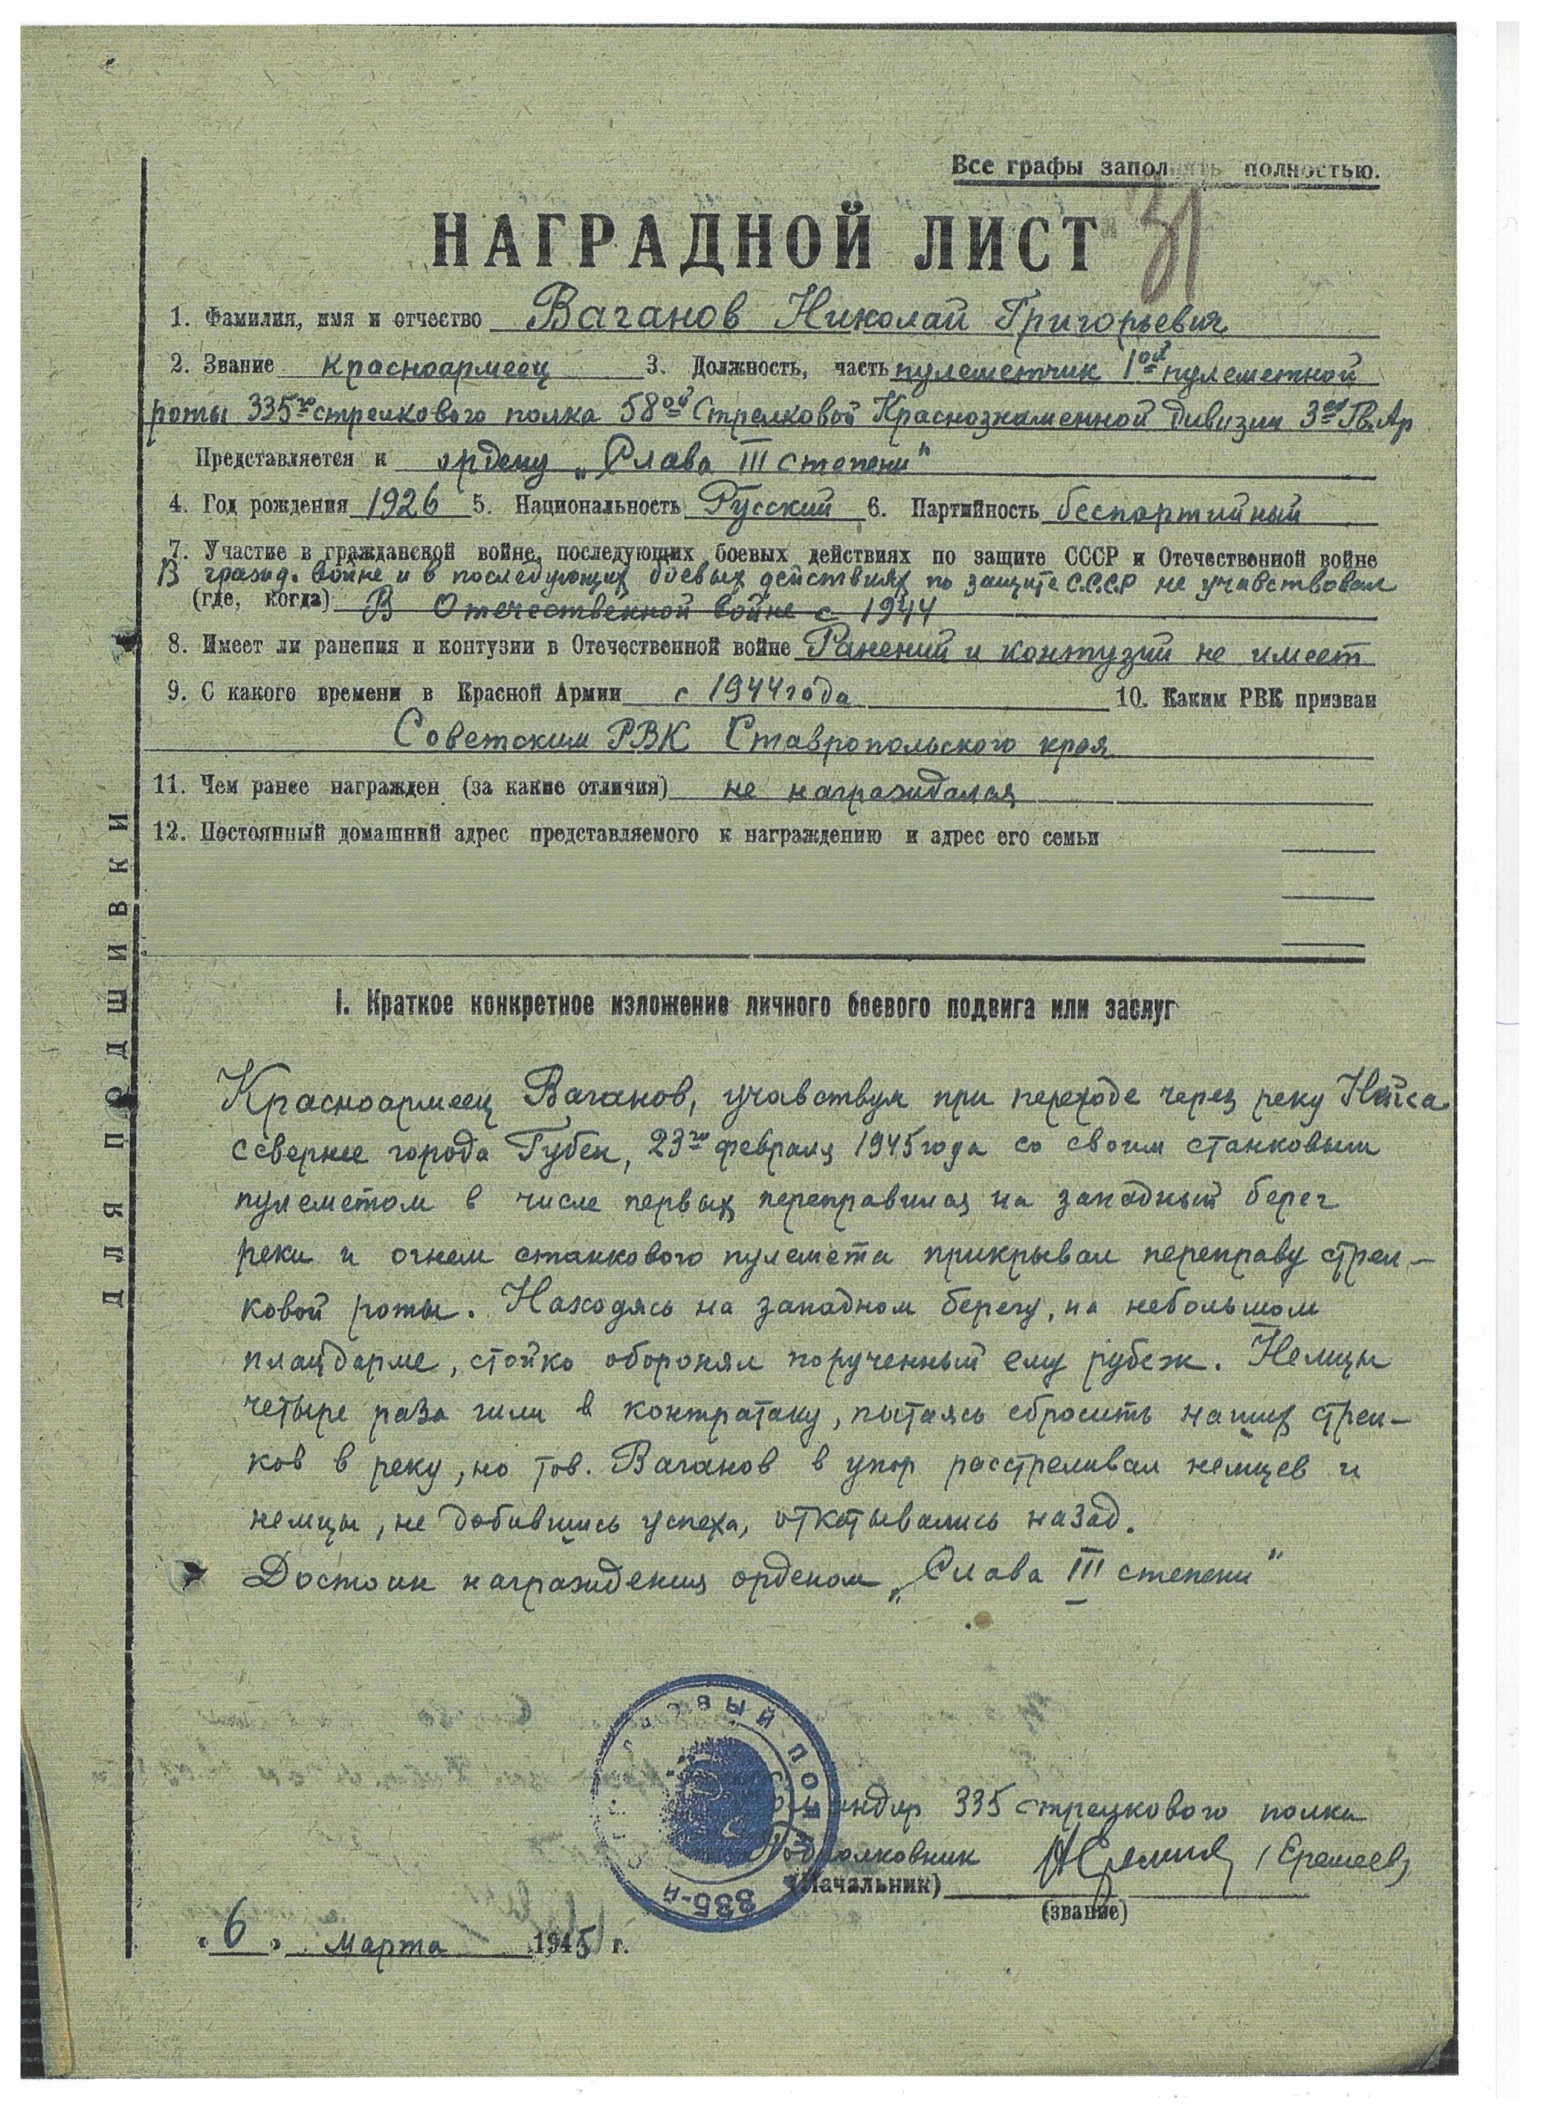 Все графы заполнять полностью.
31
НАГРАДНОЙ ЛИСТ
1. Фамилия, имя и отчество Ваганов Николай Григорьевич
2. Звание красноармеец 3. Должность, часть пулеметчик 1ой пулеметной
роты 335го стрелкового полка 58ой Стрелковой Краснознаменной дивизии 3ей Гв. Ар
Представляется к ордену „Слава III степени"
4. Год рождения 1926 5. Национальность Русский 6. Партийность беспартийный
7. Участие в гражданской войне, последующих боевых действиях по защите СССР и Отечественной войне
В гражд. войне и в последующих боевых действиях по защите С.С.С.Р не учавствовал
(где, когда) В Отечественной войне с 1944
8. Имеет ли ранения и контузии в Отечественной войне Ранений и контузий не имеет
9. С какого времени в Красной Армии с 1944 года 10. Каким РВК призван
Советским РВК Ставропольского края
11. Чем ранее награжден (за какие отличия) не награждался
12. Постоянный домашний адрес представляемого к награждению и адрес его семьи
ДЛЯ ПОДШИВКИ
I. Краткое конкретное изложение личного боевого подвига или заслуг
Красноармеец Ваганов, учавствуя при переходе через реку Нейса
севернее города Губен, 23го февраля 1945 года со своим станковым
пулеметом в числе первых переправился на западный берег
реки и огнем станкового пулемета прикрывал переправу стрел-
ковой роты. Находясь на западном берегу, на небольшом
плацдарме, стойко оборонял порученный ему рубеж. Немцы
четыре раза шли в контратаку, пытаясь сбросить наших стрел-
ков в реку, но тов. Ваганов в упор расстреливал немцев и
немцы, не добившись успеха, откатывались назад.
Достоин награждения орденом „Слава III степени"
335-й СТРЕЛКОВЫЙ ПОЛК
Командир 335 стрелкового полка
Подполковник (Еремеев)
(Начальник)
(звание)
„6" марта 1945 г.